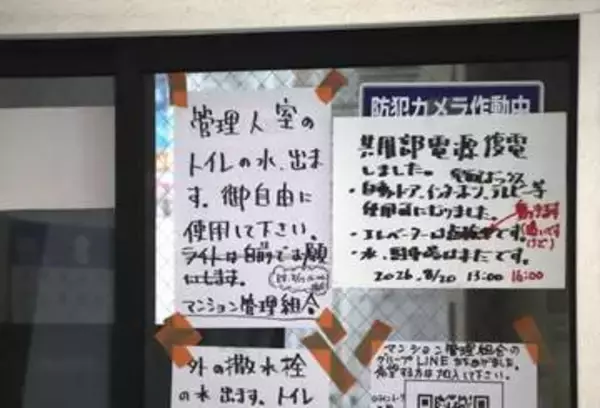 管理人室の
トイレの水、出ま
す。御自由に
使用して下さい。
ライトは自分でお願
いします。
マンション管理組合
防犯カメラ作動中
共用部電源復電
しました。
・自動ドア、インターホン、テレビ等
使用可になりました。
・エレベーターは点検中です
・水、駐車場はまだです。
2026.8/20 13:00 16:00
外の撒水栓
の水出ます。トイレ
マンション管理組合の
グループLINE
希望する方は
下さい。